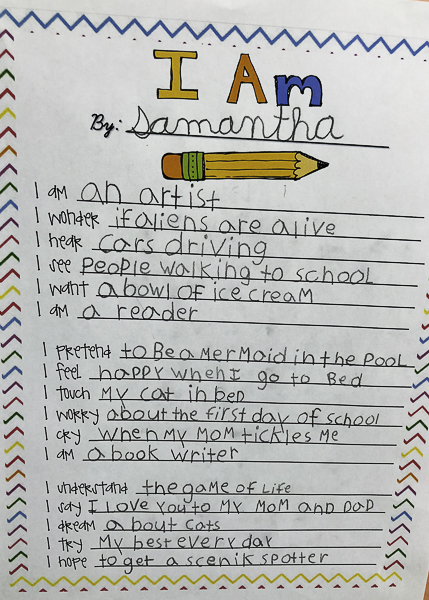 I Am
By: Samantha
I am an artist
I wonder if aliens are alive
I hear cars driving
I see people walking to school
I want a bowl of ice cream
I am a reader
I pretend to Be a merMaid in the pool
I feel happy when I go to Bed
I touch My cat in beD
I worry about the first day of school
I cry when My MoM tickles Me
I am a book writer
I understand the gaMe of Life
I say I love you to My MoM and DaD
I dream about cats
I try My best every day
I hope to get a scenik spotter